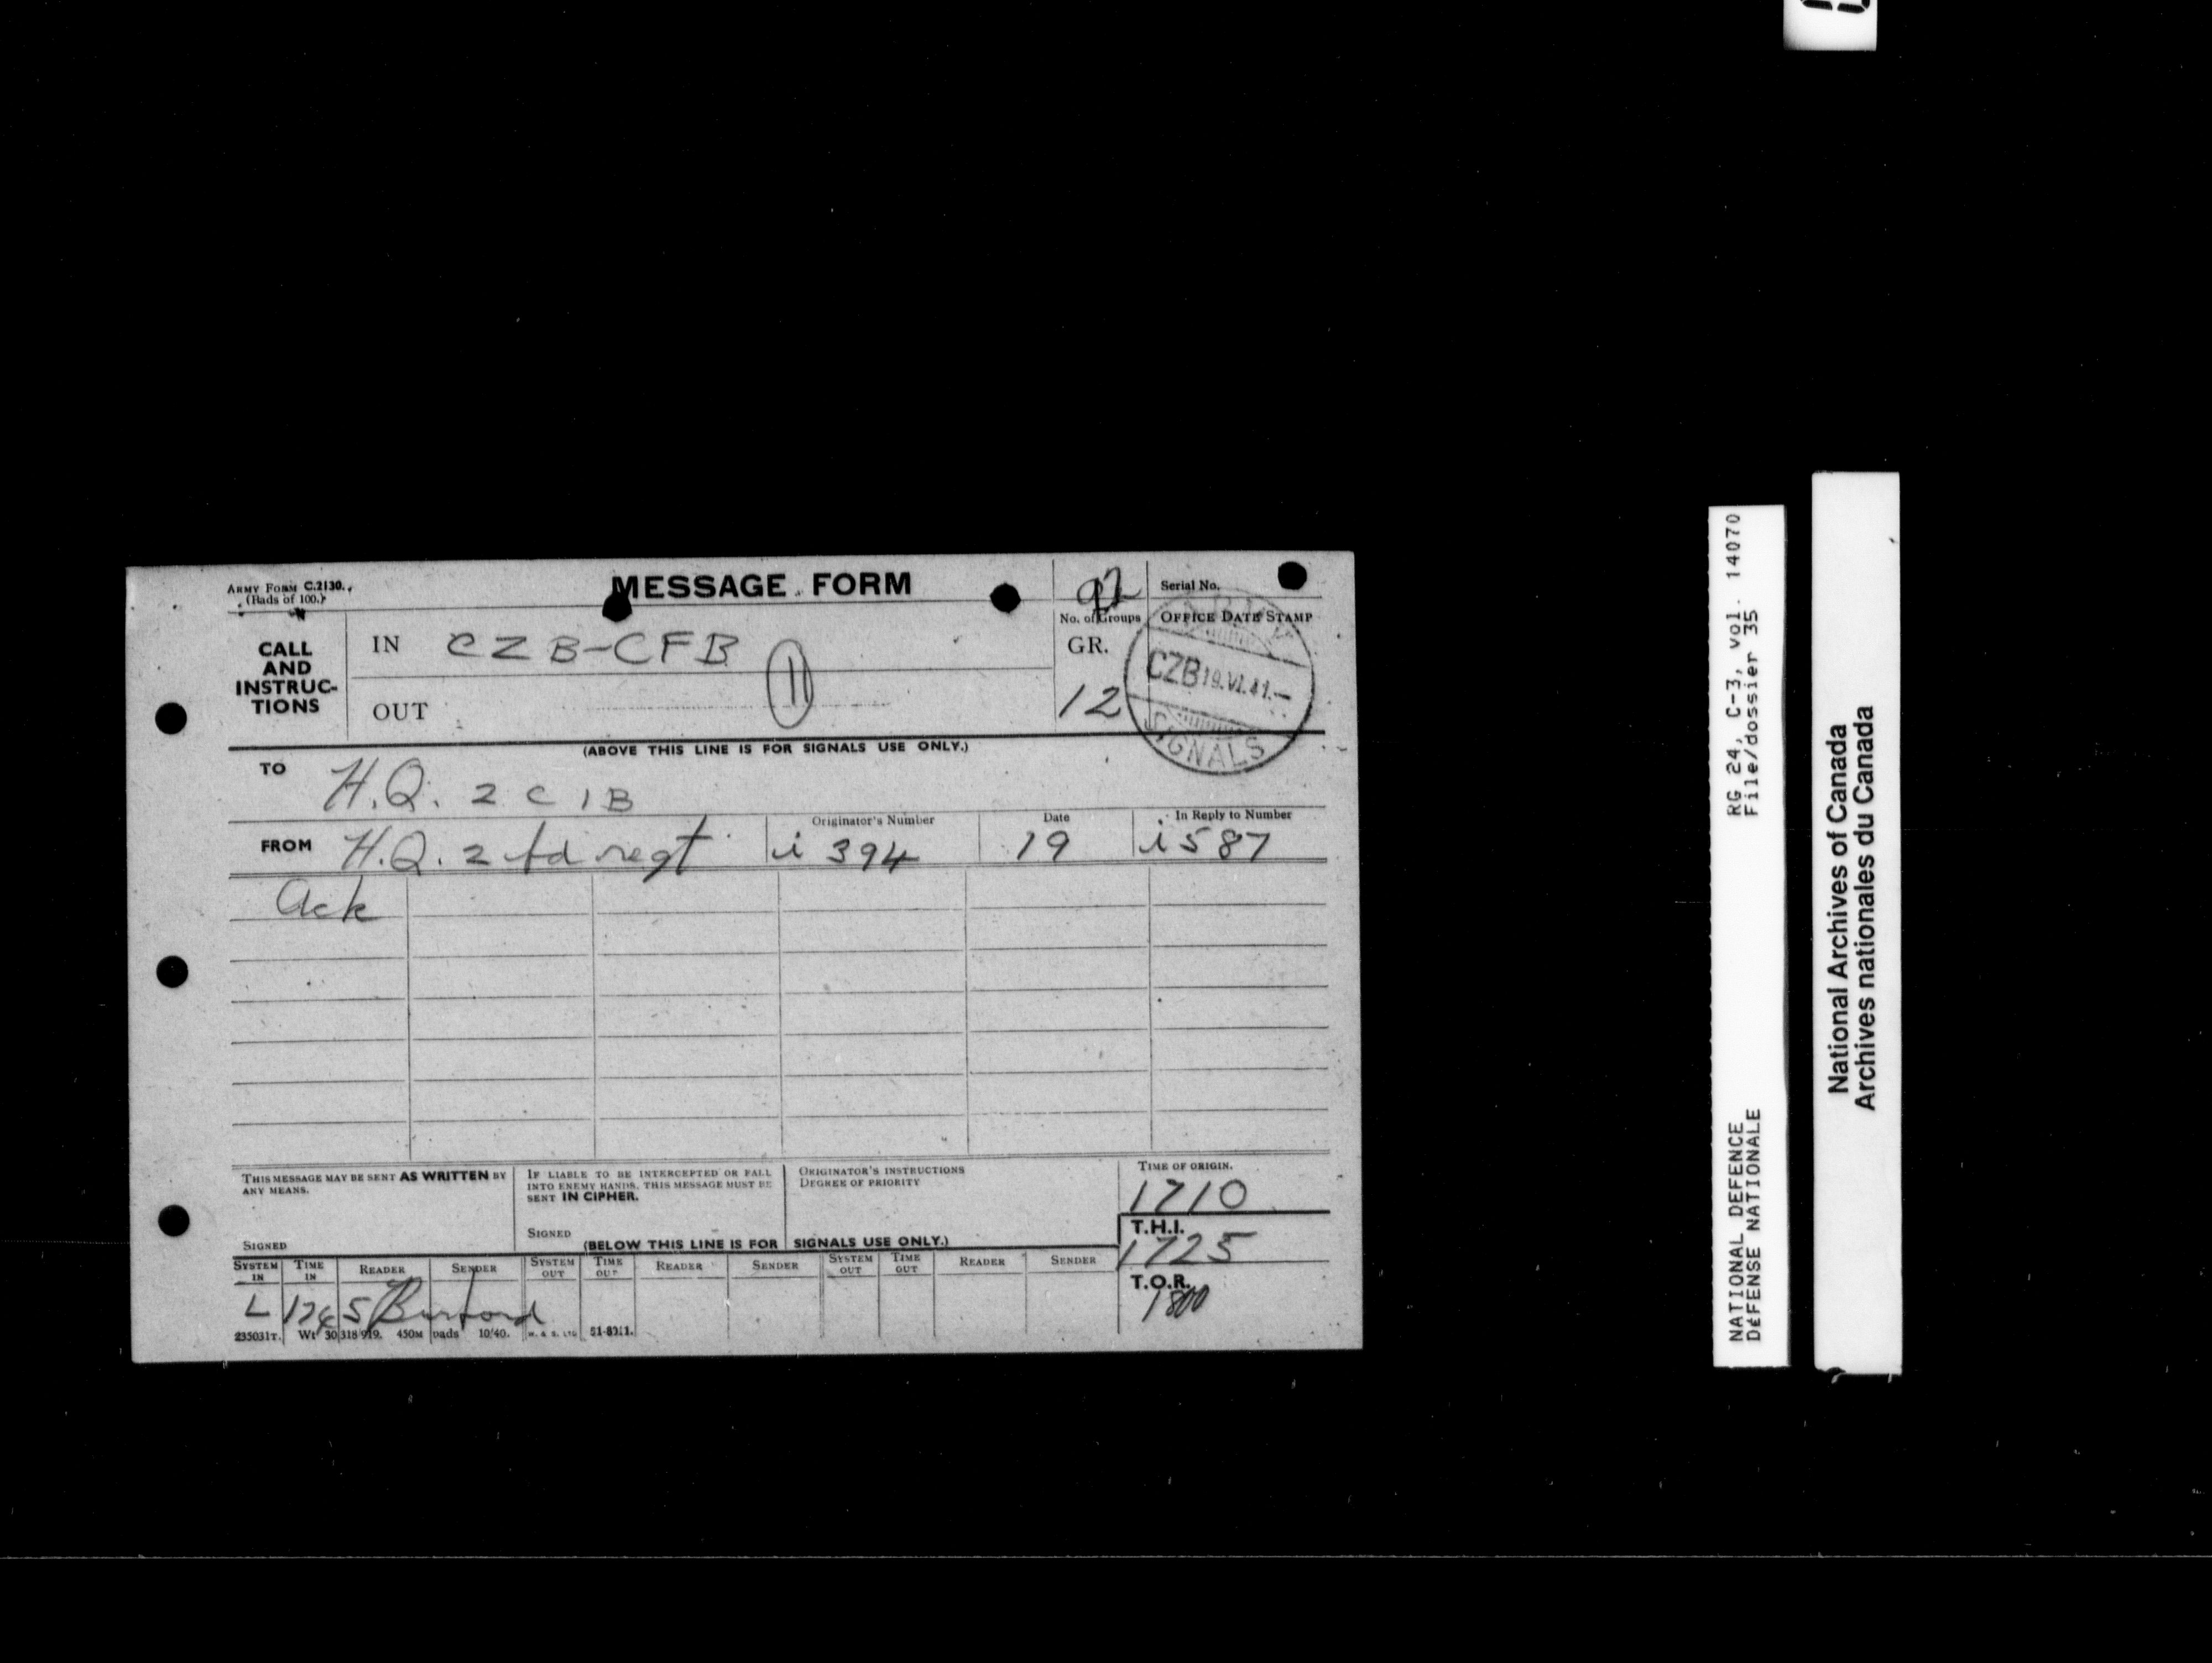 ARMY FORM C.2130.
(Pads of 100.)
MESSAGE FORM
92
Serial No.
No. of Groups
OFFICE DATE STAMP
CALL AND INSTRUC-TIONS
IN CZB-CFB
11
OUT
GR.
12
ARMY
CZB 19.VI.41.-
SIGNALS
(ABOVE THIS LINE IS FOR SIGNALS USE ONLY.)
TO H.Q. 2 C I B
FROM H.Q. 2 fd regt
Originator's Number
i 394
Date
19
In Reply to Number
i 587
Ack
THIS MESSAGE MAY BE SENT AS WRITTEN BY
ANY MEANS.
SIGNED
IF LIABLE TO BE INTERCEPTED OR FALL
INTO ENEMY HANDS, THIS MESSAGE MUST BE
SENT IN CIPHER.
SIGNED
ORIGINATOR'S INSTRUCTIONS
DEGREE OF PRIORITY
TIME OF ORIGIN.
1710
T.H.I.
1725
T.O.R.
1800
(BELOW THIS LINE IS FOR SIGNALS USE ONLY.)
SYSTEM IN TIME IN READER SENDER SYSTEM OUT TIME OUT READER SENDER SYSTEM OUT TIME OUT READER SENDER
L 1745 Burford
235031T. Wt 30318/919. 450M pads 10/40. W. & S. LTD 51-8211.
RG 24, C-3, vol. 14070
File/dossier 35
NATIONAL DEFENCE
DÉFENSE NATIONALE
National Archives of Canada
Archives nationales du Canada